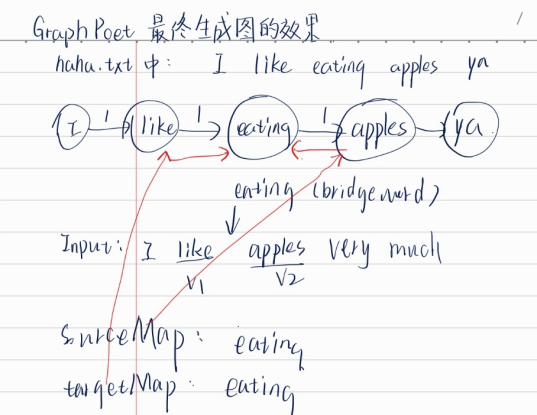 Graph Poet 最终生成图的效果
haha.txt 中: I like eating apples ya
I 1 like 1 eating 1 apples ya
eating (bridgeword)
Input: I like apples very much
V1 V2
sourceMap: eating
targetMap: eating